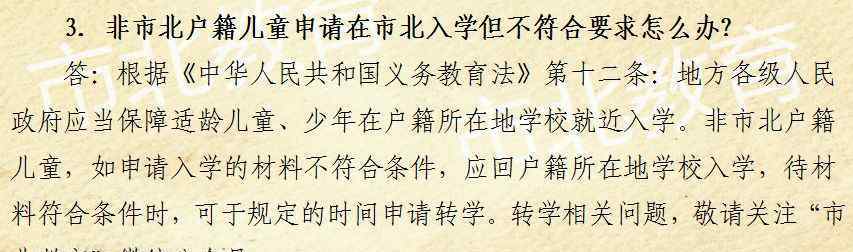 3. 非市北户籍儿童申请在市北入学但不符合要求怎么办?
答：根据《中华人民共和国义务教育法》第十二条：地方各级人民
政府应当保障适龄儿童、少年在户籍所在地学校就近入学。非市北户籍
儿童，如申请入学的材料不符合条件，应回户籍所在地学校入学，待材
料符合条件时，可于规定的时间申请转学。转学相关问题，敬请关注“市
市北教育
市北教育